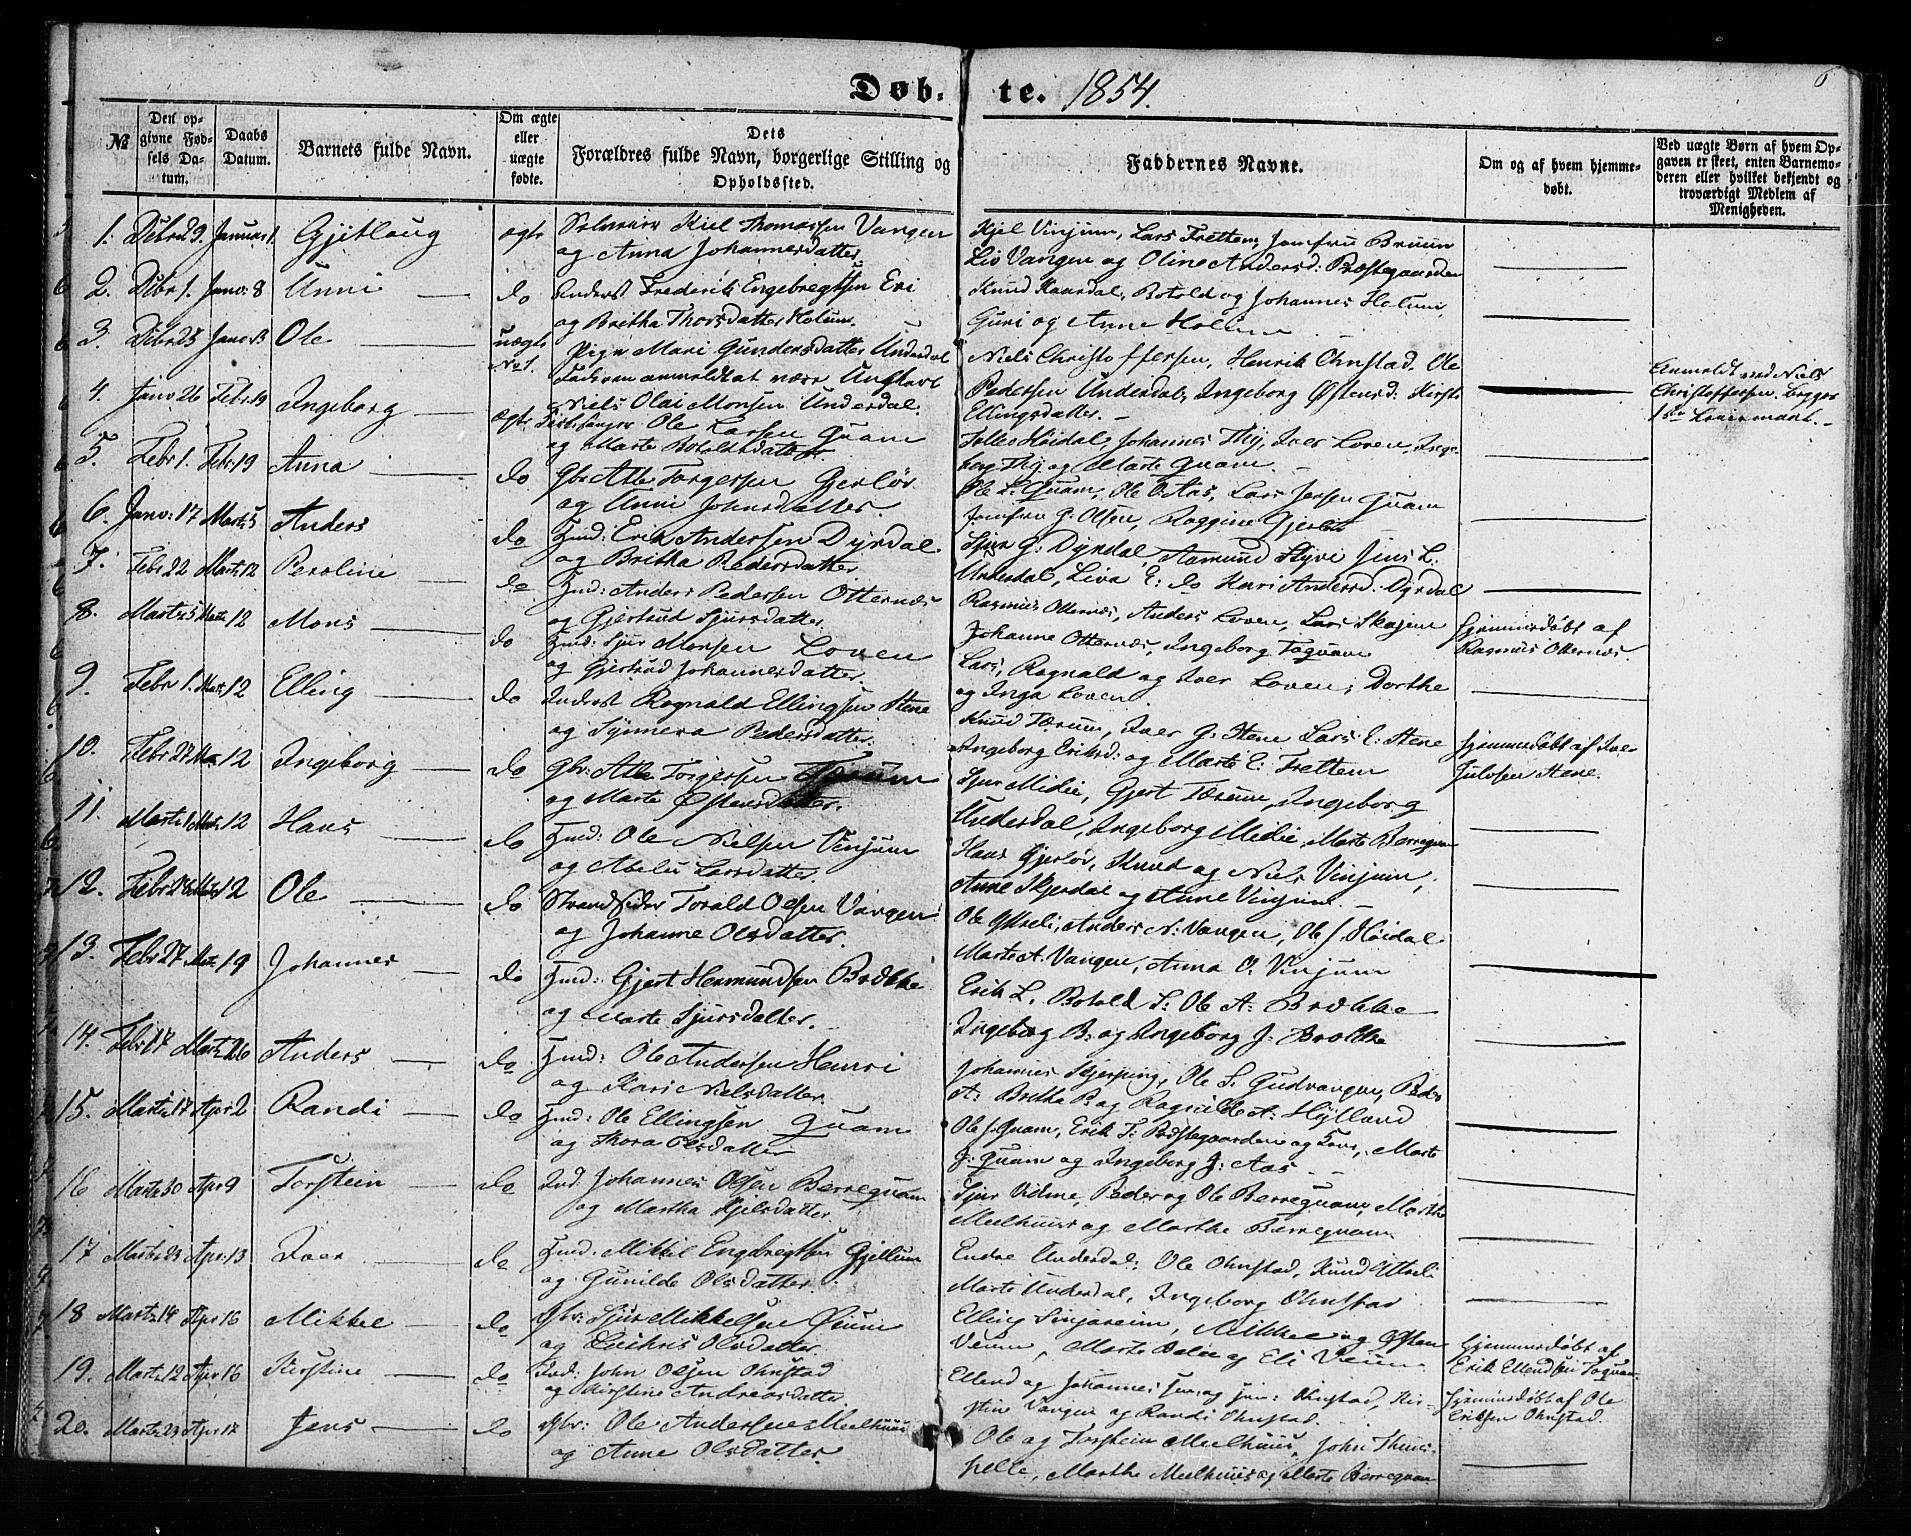 Døb-te. 1854.
6
№
Den opgivne Fødsels Datum.
Daabs Datum.
Barnets fulde Navn.
Om ægte eller uægte fødte.
Dets Forældres fulde Navn, borgerlige Stilling og Opholdssted.
Faddernes Navne.
Om og af hvem hjemmedøbt.
Ved uægte Børn af hvem Opgaven er skeet, enten Barnemoderen eller hvilket bekjendt og troværdigt Medlem af Menigheden.
1. Dcbr 29. Januar 1. Gjetloug ægte Kiel Thomassen Vangen
og Anna Johannesdatter.
Kjel Vinjum, Lars Fretten, Jomfru Bruun
Liv Vangen og Oline Andersd: Præstegaarden
2. Dcbr 1. Janv: 8 Unni do Frederik Engebregtsen Eri
og Britha Thorsdatter Holum.
Knud Kaardal, Botold og Johannes Holum,
Guri og Anne Holum
3. Dcbr 25 Janv Ole uægte No 1. Pige Mari Gundersdatter Underdal
Faderen anmeldt at være Ungkarl
Niels Olai Monsen Underdal.
Niels Christoffersen, Henrik Ohnstad. Ole
Pedersen Underdal, Ingeborg Østensd: Kirsti
Ellingsdatter.
Anmeldt ved Niels
Christoffersen, Begges
Lovermaal.
4. Janv 26 Febr 19 Ingeborg ægte Ole Larsen Quam
og Marte Botolsdatter.
Johannes Thij, Iver Loven, Ingeborg Thij og Marte Quam.
5. Febr 1. Febr: 19 Anna do Gbr: Atle Torgersen Gjerløv
og Unni Johnsdatter.
Ole L. Quam, Ole O. Aas, Lars Jensen Quam
Jomfru G. Olsen, Raggine Gjerløv
6. Janv: 17 Marts 5 Anders do Hmd: Erik Andersen Dyrdal
og Britha Pedersdatter
Sjur G: Dyrdal, Aamund Styve Jens L.
Underdal, Liva E: do Kari Andersd. Dyrdal
7. Febr 22 Marts 12 Peroline do Hmd: Anders Pedersen Otternæs
og Gjertrud Sjursdatter.
Rasmus Otternæs, Anders Loven, Lars Skajem
Johanne Otternæs, Ingeborg Toquam
Hjemmedøbt af
Rasmus Otternæs.
8. Marts 5 Marts 12 Mons do Hmd: Sjur Monsen Loven
og Gjertrud Johannesdatter.
Lars, Ragnald og Iver Loven, Dorthe
og Inga Loven.
9. Febr 1. Marts 12 Elling do Inderst Rognald Ellingsen Stene
og Synneva Pedersdatter.
Knud Tærum, Iver G. Stene Lars E: Stene
Ingeborg Eriksd: og Marte E: Frettem
Hjemmedøbt af Iver
Julosen Stene.
10. Febr 27 12 Ingeborg do Gbr: Atle Torgersen Tærum
og Marte Østensdatter.
Sjur Midie, Gjert Tærum, Ingeborg
Underdal, Ingeborg Midie, Marte Berrequam
11. Marts 1 Marts 12 Hans do Hmd: Ole Nielsen Vinjum
og Abelu Larsdatter.
Hans Gjerløv, Knud og Niels Vinjum,
Anne Skjerdal og Anne Vinjum.
12. Febr 28 12 Ole do Strandsider Torald Olsen Vangen
og Johanne Olsdatter.
Ole Ytreli, Anders N: Vangen, Ole J. Høidal
Marte A. Vangen, Anna O. Vinjum
13. Febr 27 19 Johannes do Hmd: Gjert Hermundsen Brække
og Marte Sjursdatter.
Erik L. Botold S: Ole A: Brække
Ingeborg B: og Ingeborg J. Brække
14. Febr 17 Marts 26 Anders do Hmd: Ole Andersen Hemri
og Kari Nielsdatter.
Johannes Skjerping, Ole S. Gudvangen, Peder
A: Britha P. og Ragnilde A: Hylland
15. Marts 17 Apr 2 Randi do Hmd: Ole Ellingsen Quam
og Thora Olsdatter
Ole J. Quam, Erik T: Præstegaarden og, Marte
J. Quam og Ingeborg J: Aas.
16 Marts 30 Apr 9 Torstein do Ind. Johannes Olsen Berrequam
og Martha Kjelsdatter.
Sjur Vidme, Peder og Ole Berrequam, Marthe
Meelhuus og Marthe Berrequam
17 Marts 23 Apr. 13 Iver do Hmd: Mikkel Engebregtsen Gjellum
og Gunilde Olsdatter.
Endre Underdal; Ole Ohnstad, Knud Ytreli
Marte Underdal, Ingeborg Ohnstad
18 Marts 14 Apr 16 Mikkel do Gbr: Sjur Mikkelsen Veum
og Olsdatter.
Elling Sinjareim, Mikkel og Østen
Veum, Marte og Eli Veum
Hjemmedøbt af
Erik Ellendsen Toquam
19. Marts 12 Apr 16 Kirstine do Ind: John Olsen Ohnstad
og Kirstine Andreasdatter
Ellend og Johannes sen: og jun: Ohnstad, Kirstine Vangen og Randi Ohnstad.
Hjemmedøbt af Ole
Eriksen Ohnstad.
20. Marts 23 Apr 17 Jens do Gbr: Ole Andersen Meelhuus
og Anne Olsdatter.
Ole og Torstein Meelhuus, John Thunshelle, Marthe Meelhuus og Marte Berrequam